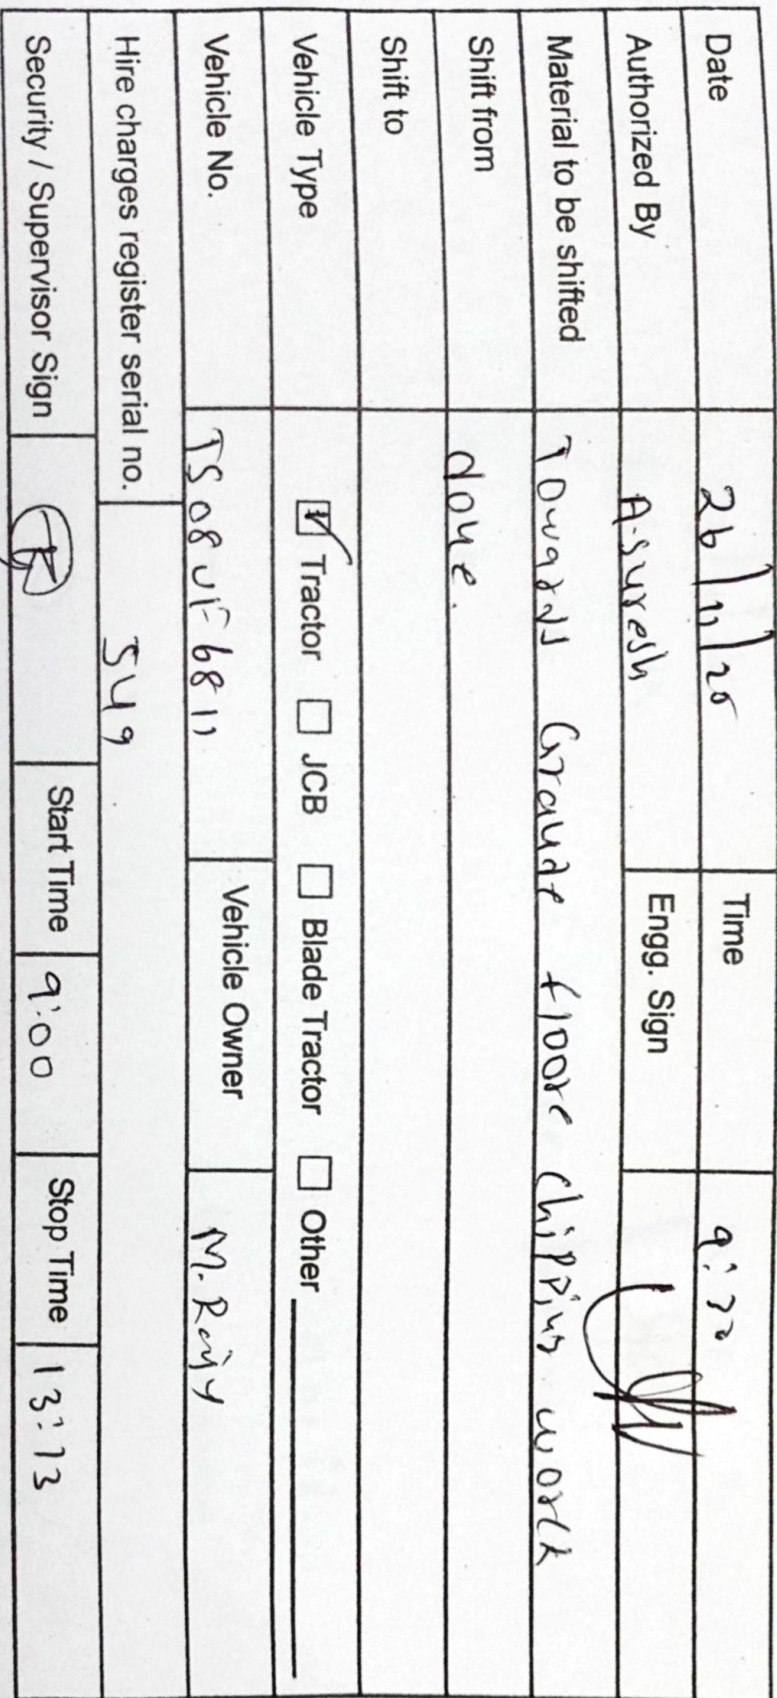 Date 26/11/20 Time 9:30
Authorized By A.suresh Engg. Sign
Material to be shifted Towards Graude floore chipping worck
Shift from done.
Shift to
Vehicle Type ☑ Tractor ☐ JCB ☐ Blade Tractor ☐ Other
Vehicle No. TS08UF6811 Vehicle Owner M. Raju
Hire charges register serial no. 549
Security / Supervisor Sign Start Time 9:00 Stop Time 13:13